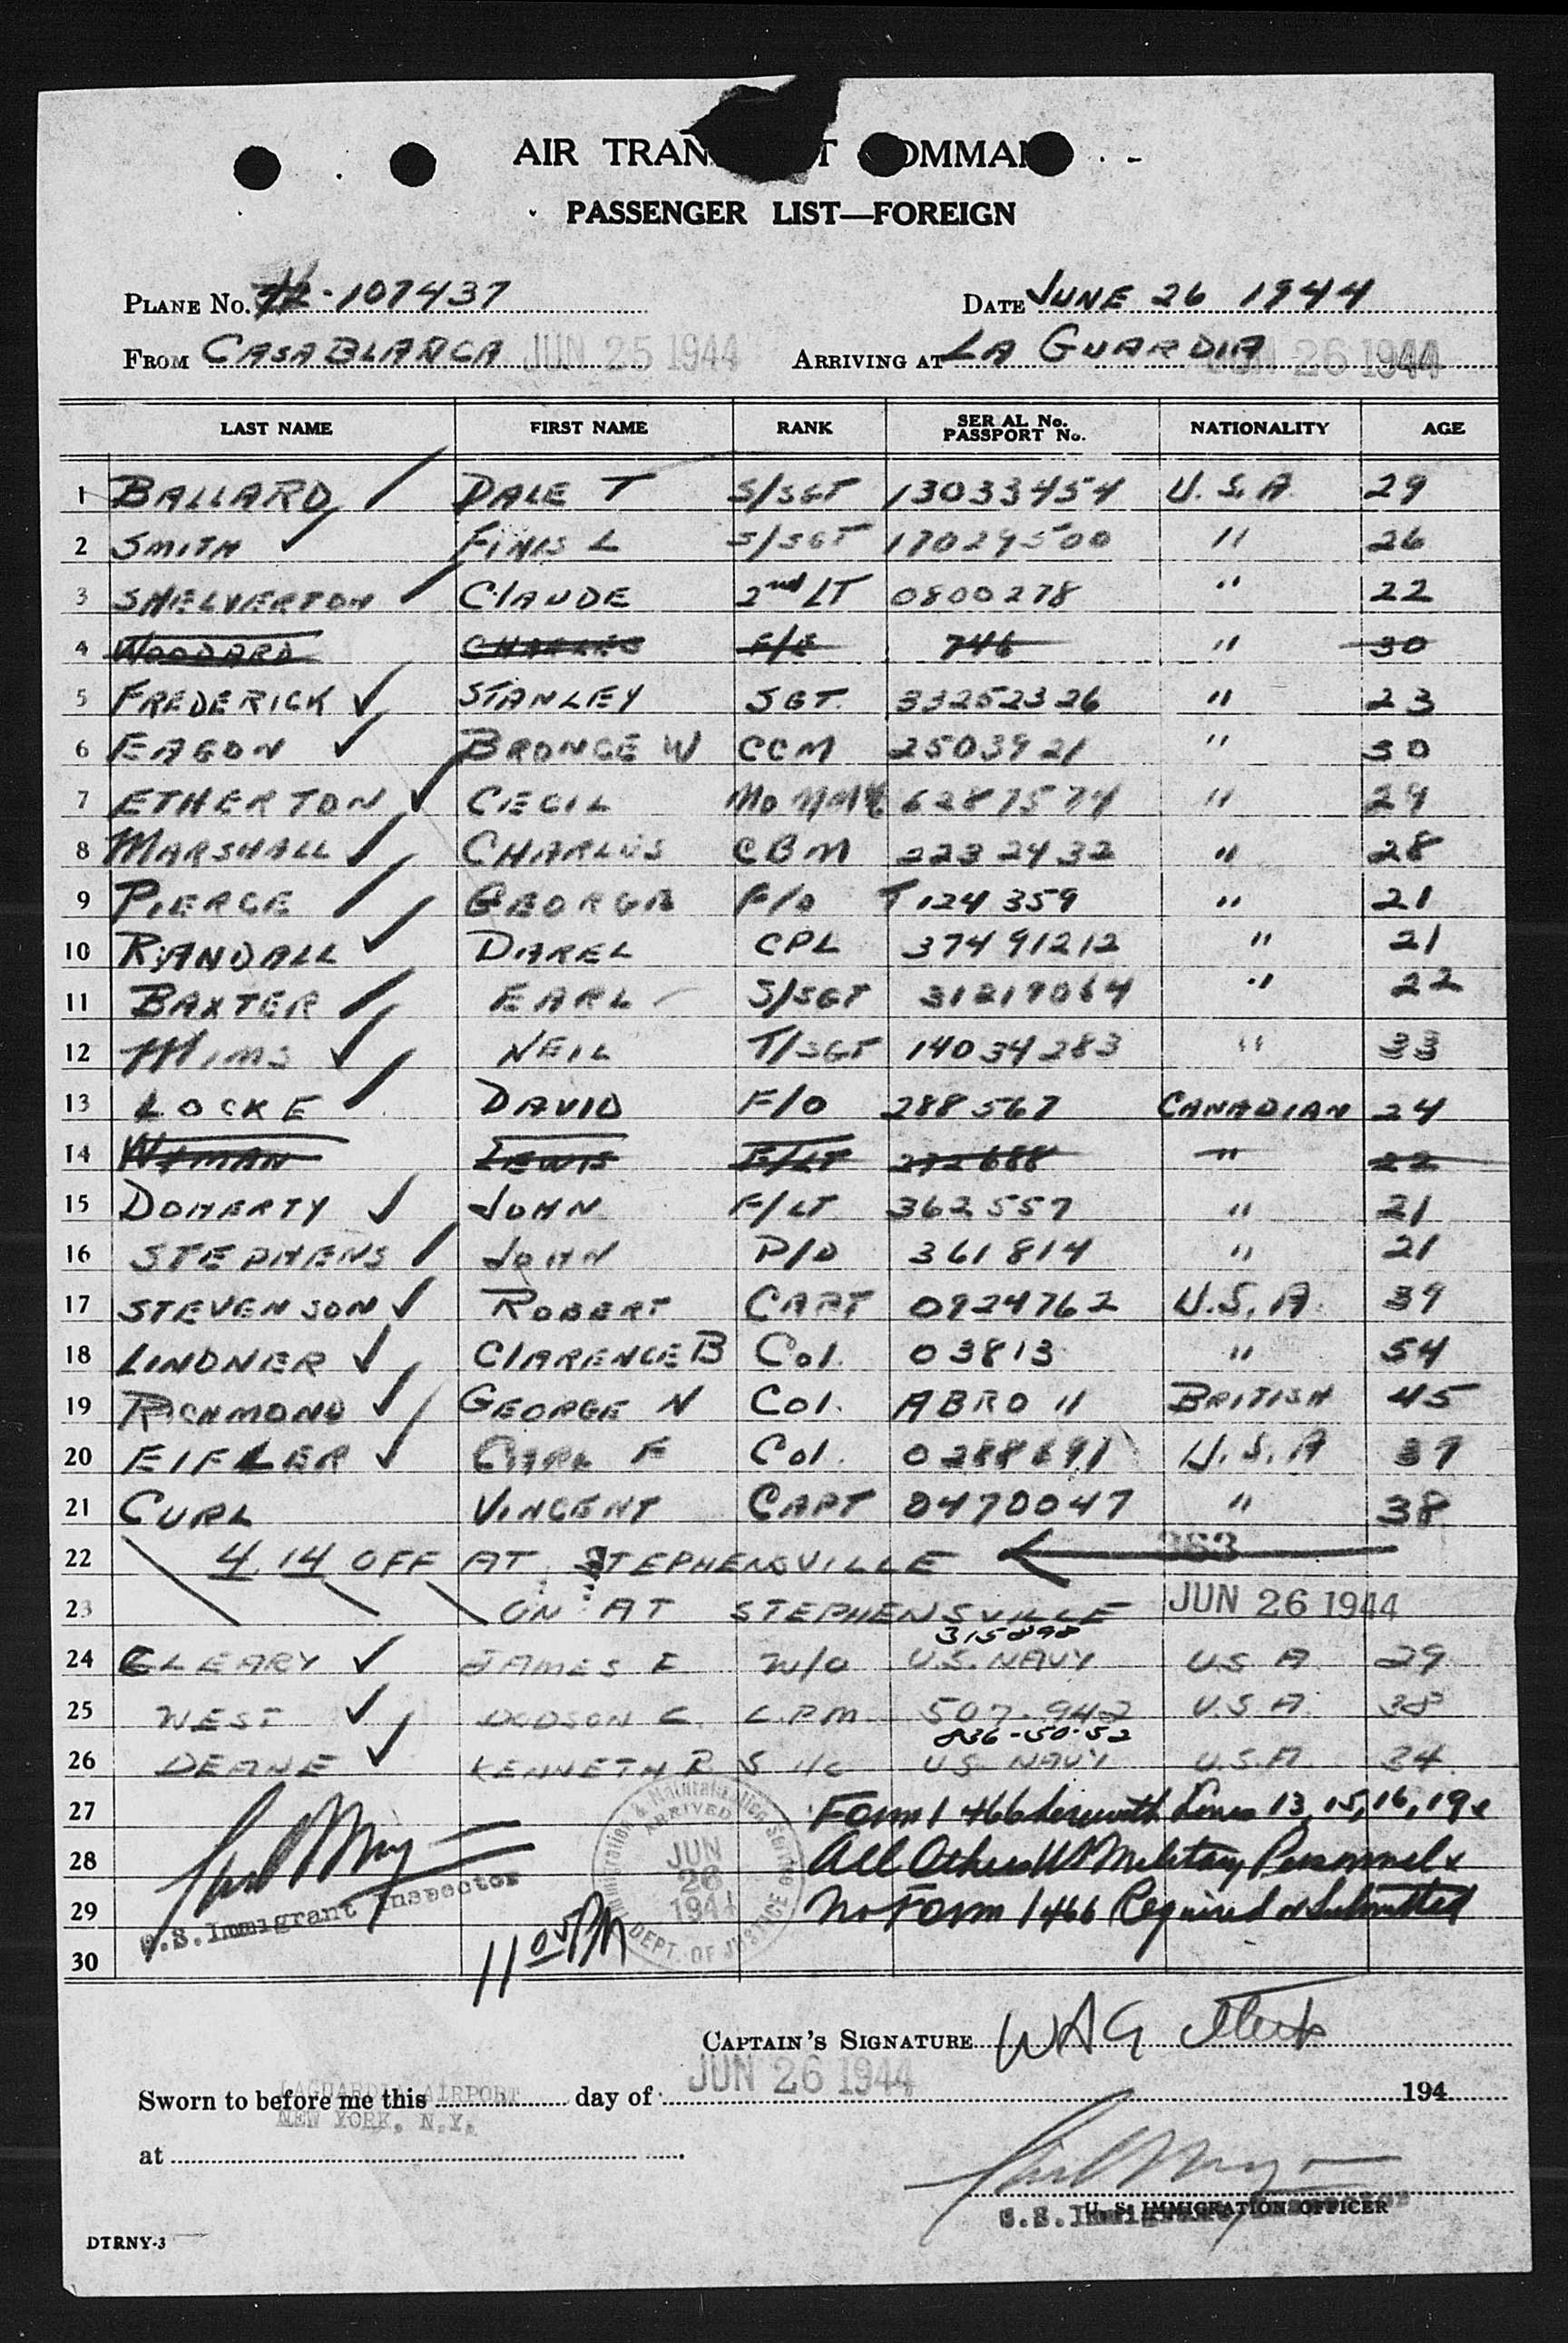 AIR TRAN T OMMAN
PASSENGER LIST—FOREIGN
PLANE No. 42-107437 DATE JUNE 26 1944
FROM CASABLANCA JUN 25 1944 ARRIVING AT LA GUARDIA JUN 26 1944
LAST NAME FIRST NAME RANK SERIAL No. PASSPORT No. NATIONALITY AGE
1 BALLARD DALE T S/SGT 13033454 U.S.A. 29
2 SMITH FINIS L S/SGT 17029500 " 26
3 SHELVERTON CLAUDE 2nd LT 0800278 " 22
4 WOODARD CHARLES 746 " 30
5 FREDERICK STANLEY SGT. 33252326 " 23
6 EAGON BRONCE W CCM 2503921 " 30
7 ETHERTON CECIL 6287574 " 29
8 MARSHALL CHARLES CBM 2232432 " 28
9 PIERCE GEORGE F/O T124359 " 21
10 RANDALL DAREL CPL 37491212 " 21
11 BAXTER EARL S/SGT 31219064 " 22
12 MIMS NEIL T/SGT 14034283 " 33
13 LOCKE DAVID F/O 288567 CANADIAN 24
14 WYMAN LEWIS F/LT 272688 " 22
15 DOHERTY JOHN F/LT 362557 " 21
16 STEPHENS JOHN P/O 361814 " 21
17 STEVENSON ROBERT CAPT 0924762 U.S.A. 39
18 LINDNER CLARENCE B Col. 03813 " 54
19 RICHMOND GEORGE N Col. ABRO 11 BRITISH 45
20 EIFLER CARL F Col. 0288691 U.S.A 37
21 CURL VINCENT CAPT 0470047 " 38
22 4, 14 OFF AT STEPHENSVILLE 363
23 ON AT STEPHENSVILLE JUN 26 1944
315898
24 CLEARY JAMES E W/O U.S. NAVY U.S A 29
25 WEST DODSON C. C.P.M. 507-942 U.S A. 38
836-50-52
26 DEANE KENNETH R S 1/C US NAVY U.S.A. 24
27 Form 1466 herewith Lines 13, 15, 16, 19
28 All Others US Military Personnel
29 No Form 1466 Required or Submitted
30
U.S. Immigrant Inspector
11 05 PM
Immigration & Naturalization Service
ARRIVED
JUN
26
1944
DEPT. OF JUSTICE
CAPTAIN'S SIGNATURE
Sworn to before me this day of JUN 26 1944 194
LAGUARDIA AIRPORT
NEW YORK, N.Y.
at
U. S. IMMIGRATION OFFICER
U.S. Immigrant Inspector
DTRNY-3